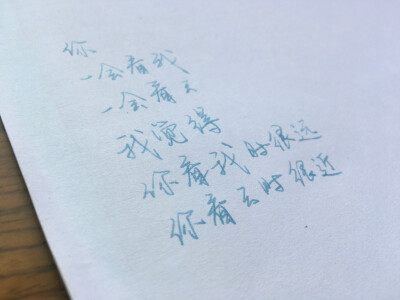 你
一会看我
一会看云
我觉得
你看我时很远
你看云时很近